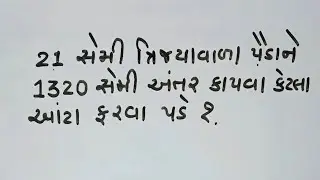 21 સેમી ત્રિજ્યાવાળા પૈડાને
1320 સેમી અંતર કાપવા કેટલા
આંટા ફરવા પડે ?